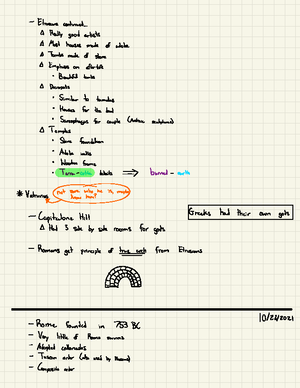 - Etruscans continued...
Δ Really good artists
Δ Most houses made of adobe
Δ Tombs made of stone
Δ Emphasis on afterlife
• Beautiful tombs
Δ
• Similar to tumulus
• Houses for the dead
• Sarcophagus for couple
Δ Temples
• Stone foundation
• Adobe walls
• Wooden frame
• Terra-cotta details ⟹ burned-earth
* Vulca
- Capitoline Hill
Δ Had 3 side by side rooms for gods
Greeks had their own gods
- Romans get principle of true arch from Etruscans
10/21/2021
- Rome founded in 753 BC
- Very little of Rome survives
- Adopted colonnades
- Tuscan order
- Composite order